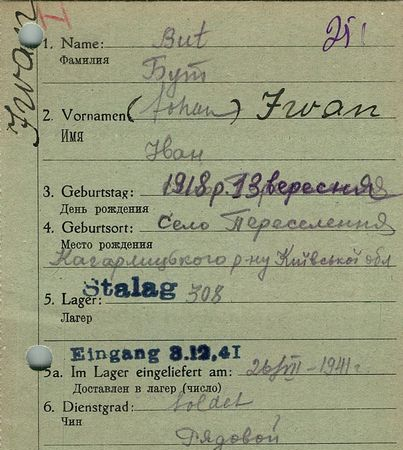 Iwan
I
1. Name: But 251
Фамилия
Бут
2. Vornamen: (Johan) Iwan
Имя
Іван
3. Geburtstag: 1918 р. 13 вересня
День рождения
4. Geburtsort: Село Переселення
Место рождения
Кагарлицького р-ну Київської обл
5. Lager: Stalag 308
Лагер
Eingang 3.12.41
5a. Im Lager eingeliefert am: 26/VII - 1941 г
Доставлен в лагер (число)
6. Dienstgrad: Soldat
Чин
Рядовой